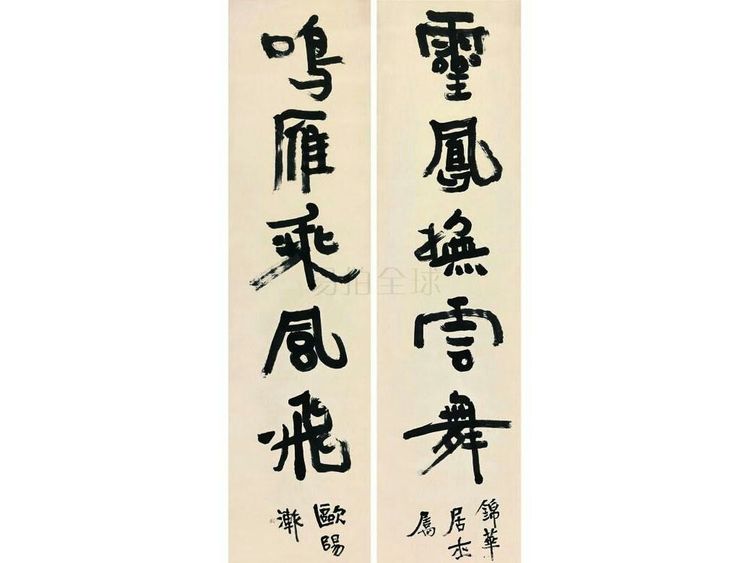 靈鳳撫雲舞
錦華
居士
屬
鳴雁乘風飛
歐陽
漸
易拍全球